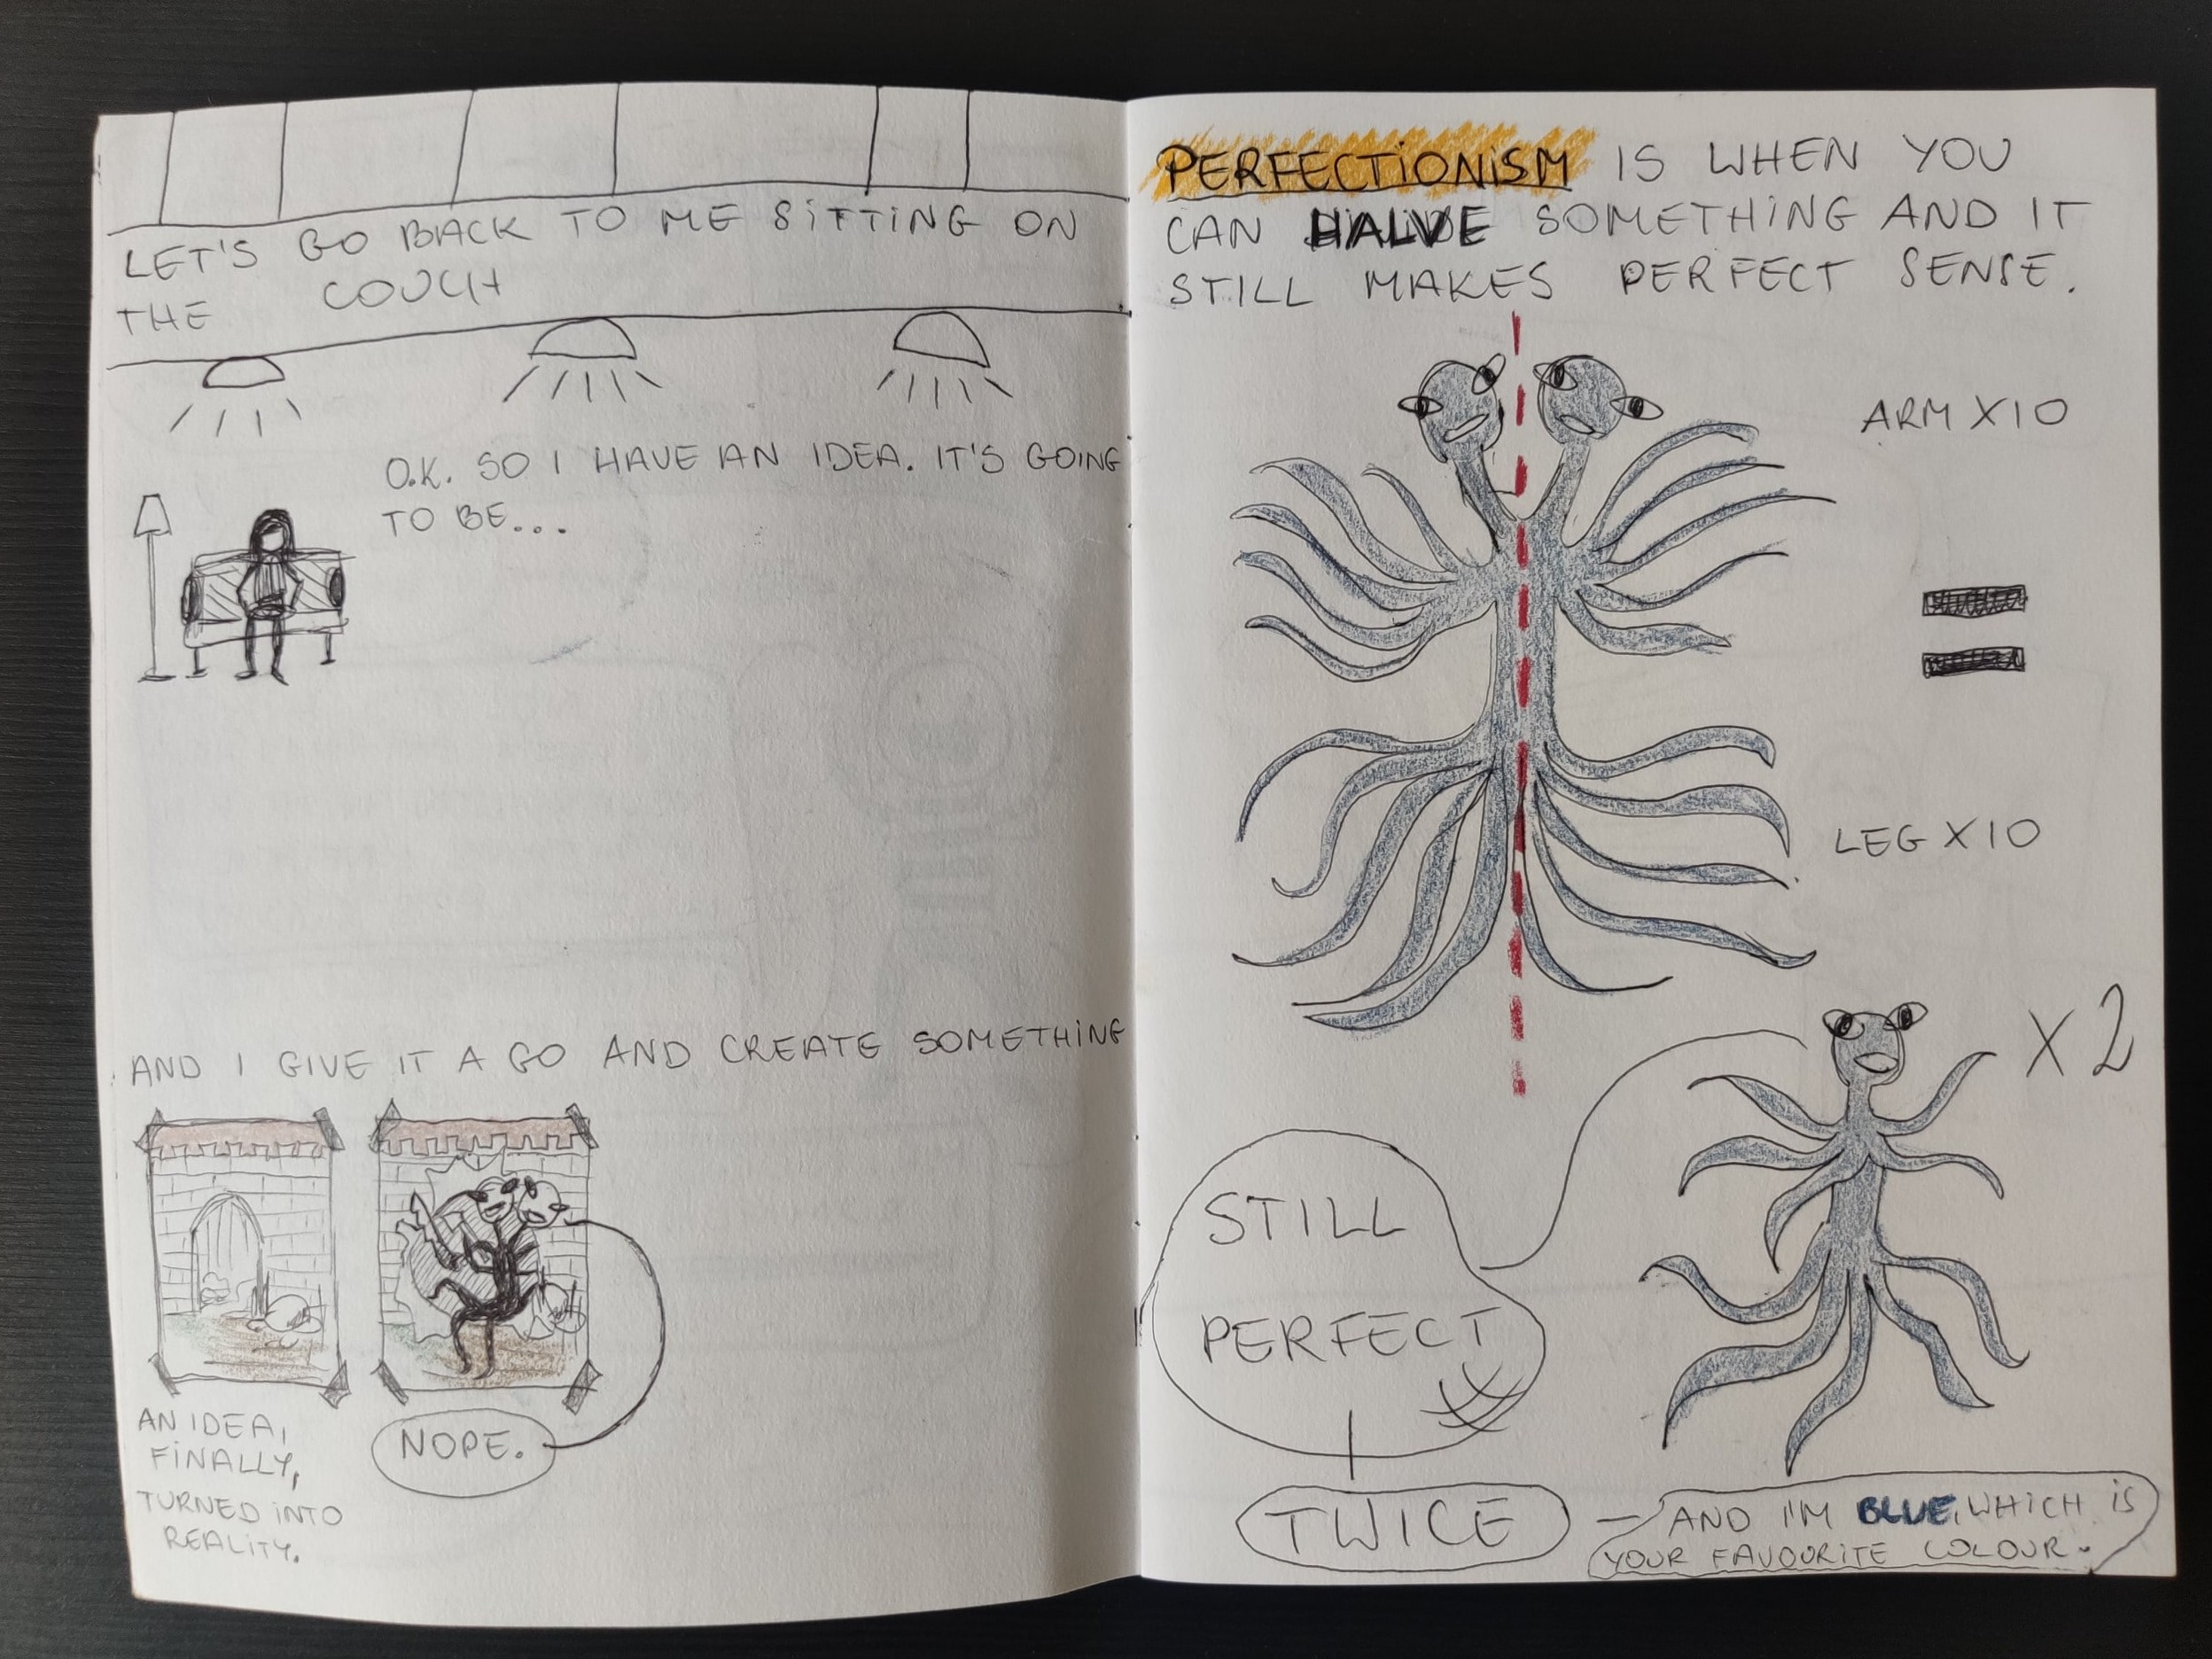 LET'S GO BACK TO ME SITTING ON
THE COUCH
O.K. SO I HAVE AN IDEA. IT'S GOING
TO BE...
AND I GIVE IT A GO AND CREATE SOMETHING
AN IDEA,
FINALLY,
TURNED INTO
REALITY.
NOPE.
PERFECTIONISM IS WHEN YOU
CAN HALVE SOMETHING AND IT
STILL MAKES PERFECT SENSE.
ARM X10
=
LEG X10
X 2
STILL
PERFECT
TWICE
AND I'M BLUE, WHICH IS
YOUR FAVOURITE COLOUR.